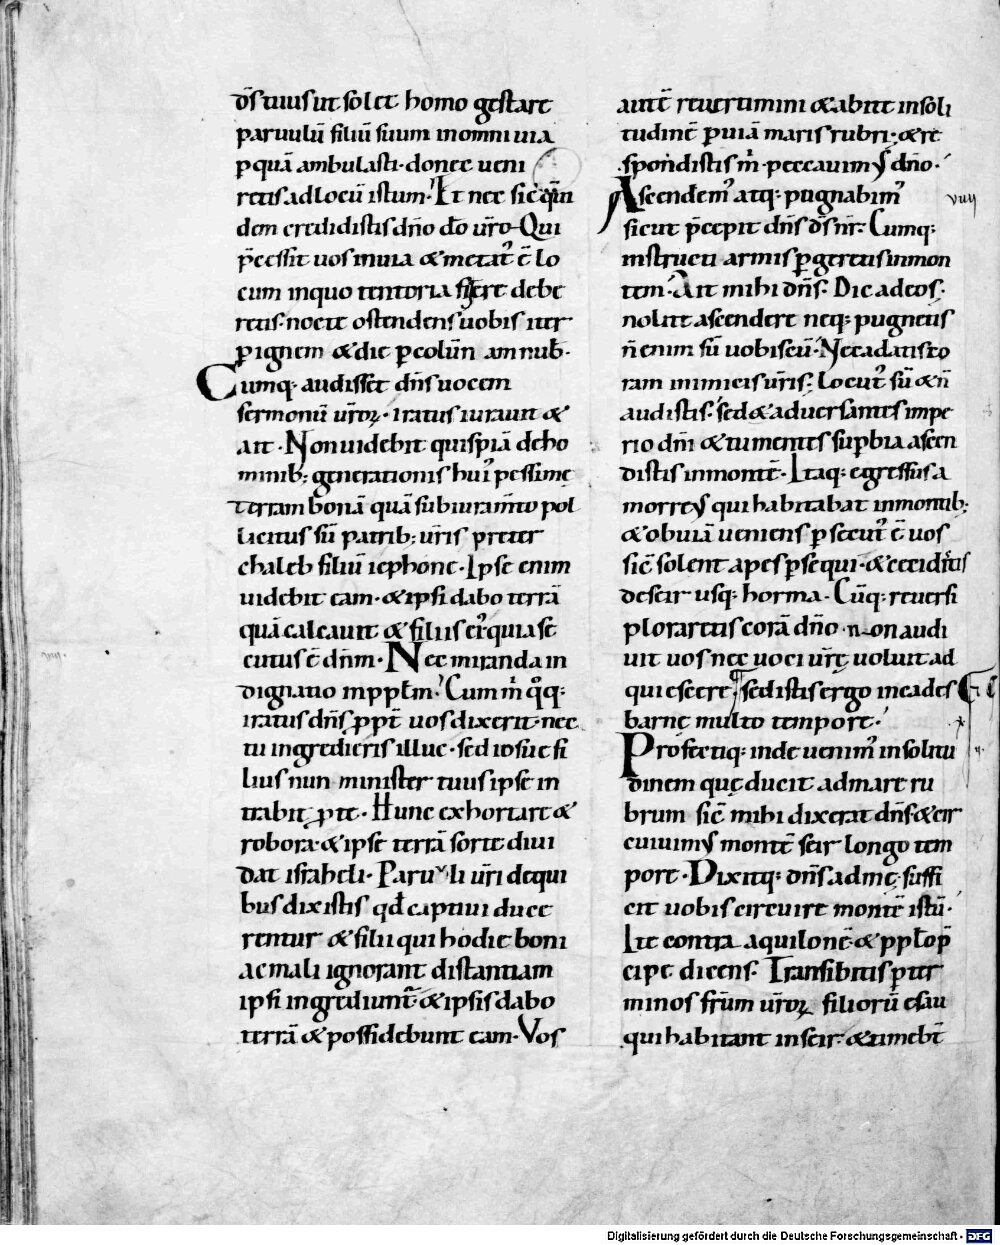 d̄s tuus ut solet homo gestare
paruulū filiū suum in omni uia
p quā ambulasti· donec ueni
retis ad locū istum· Et nec sic q̄in
dem credidistis dn̄o dō ur̄o· Qui
p̄cessit uos in uia & metat᷒ ē lo
cum in quo tentoria figere debe
retis· nocte ostendens uobis iter
ꝑ ignem & die ꝑ colūn am nub̄·
Cumq; audisset dn̄s uocem
sermonū ur̄oꝝ· iratus iurauit &
ait· Non uidebit quispiā de ho
minib; generationis hui᷒ pessime
terram bonā quā sub iuram̄to pol
licitus sū patrib; ur̄is preter
chaleb filiū iephone· Ipse enim
uidebit eam· & ipsi dabo terrā
quā calcauit & filiis ei᷒ quia se
cutus ē dn̄m· Nec miranda in
dignatio in ppłm· Cum m̄ qͦq;
iratus dn̄s ꝓpt̄ uos dixerit· nec
tu ingredieris illuc· sed iosue fi
lius nun minister tuus ipse in
trabit ꝓ te· Hunc exhortare &
robora· & ipse terrā sorte diui
dat israheli· Paruuli ur̄i de qui
bus dixistis qd̄ captiui duce
rentur & filii qui hodie boni
ac mali ignorant distantiam
ipsi ingredient̄· & ipsis dabo
terrā & possidebunt eam· Vos
autē reuertimini & abite in soli
tudinē ꝑ uiā maris rubri· & re
spondistis m̄· peccauim᷒ dn̄o·
Ascendem᷒ atq; pugnabim᷒ viiii
sicut p̄cepit dn̄s d̄s nr̄· Cumq;
instructi armis ꝑgeretis in mon
tem· Ait mihi dn̄s· Dic ad eos·
nolite ascendere neq; pugnetis
n̄ enim sū uobiscū· Ne cadatis co
ram inimicis ur̄is· Locut᷒ sū & n̄
audistis· sed & aduersantes impe
rio dn̄i & tumentes supbia ascen
distis in montē· Itaq; egressus a
morre᷒ qui habitabat in montib;
& obuiā ueniens ꝑsecut᷒ ē uos
sic̄ solent apes ꝑsequi· & cecidit uos
de seir usq; horma· Cūq; reuersi
ploraretis corā dn̄o· non audi
uit uos nec uoci ur̄ę uoluit ad
quiescere· sedistis ergo in cades
barnę multo tempore·
Profectiq; inde uenim᷒ in solitu
dinem quę ducit ad mare ru
brum sic̄ mihi dixerat dn̄s· & cir
cuiuim᷒ montē seir longo tem
pore· Dixitq; dn̄s ad mę· suffi
cit uobis circuire montē istū·
Ite contra aquilonē· & ppło p̄
cipe dicens· Transibitis ꝑ ter
minos fr̄um ur̄oꝝ filiorū esau
qui habitant in seir· & timebt̄
Digitalisierung gefördert durch die Deutsche Forschungsgemeinschaft - DFG